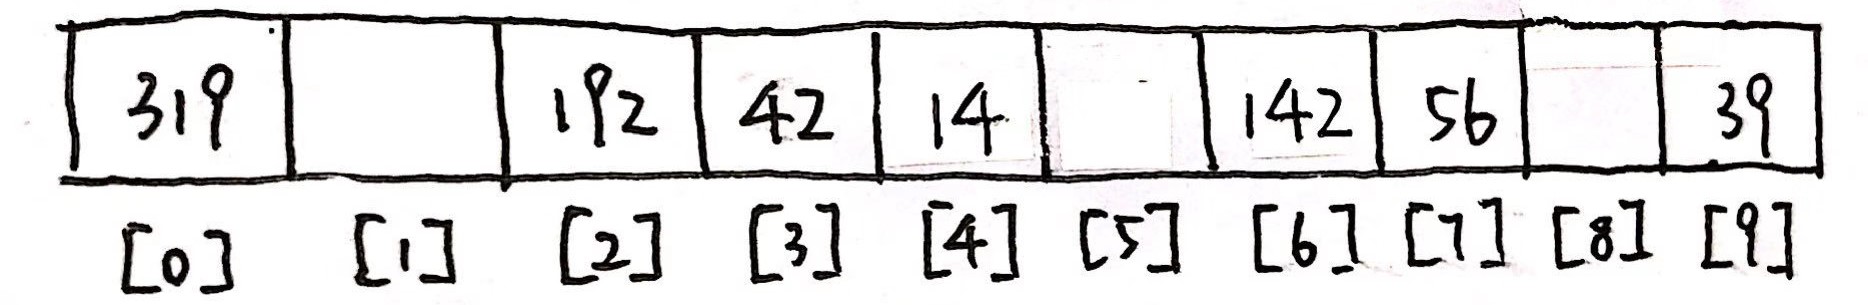 319 192 42 14 142 56 39
[0] [1] [2] [3] [4] [5] [6] [7] [8] [9]